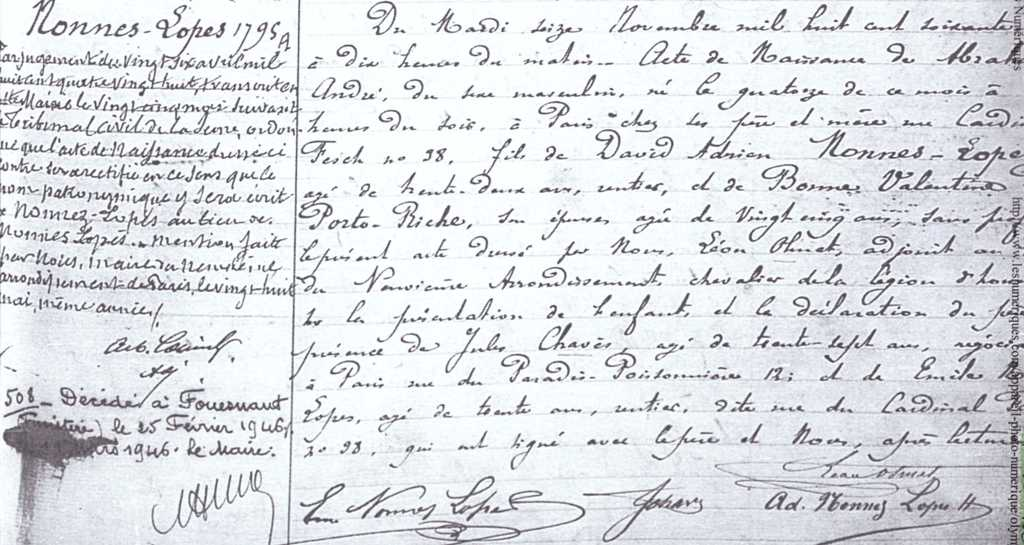 Nonnes-Lopes 1795
par jugement du vingt six avril mil
huit cent quatre vingt huit, transcrit en
cette Mairie le vingt cinq mai suivant
le tribunal civil de la Seine, ordon
ne que l'acte de Naissance dressé ci
contre sera rectifié en ce sens que le
nom patronymique y sera écrit
Nonnez-Lopès au lieu de
Nonnes Lopès. mention fait
par Nous, maire du neuvième
arrondissement de Paris, le vingt huit
mai, même année.
508 - Décédé à Fouesnant
(Finistère) le 25 Février 1946
1946. le Maire.
Du Mardi seize Novembre mil huit cent soixante
à dix heures du matin. Acte de Naissance de Abrah
André, du sexe masculin, né le quatorze de ce mois à
heures du soir, à Paris chez ses père et mère rue Cardin
Fesch no 38, fils de David Adrien Nonnes-Lopes
agé de trente-deux ans, rentier, et de Bonne Valentine
Porto-Riche, son épouse agée de vingt cinq ans, sans prof
le présent acte dressé par Nous, Léon Ohnet, adjoint au
du Neuvième Arrondissement, chevalier de la Légion d'hon
sur la présentation de l'enfant, et la déclaration du père
présence de Jules Chavès, agé de trente-sept ans, négocia
à Paris rue du Paradis-Poissonnière 12; et de Emile
Lopes, agé de trente ans, rentier, dite rue du Cardinal
no 38, qui ont signé avec le père et Nous, après lecture
Léon Ohnet
Em Nonnes Lopes JChaves Ad. Nonnes Lopes